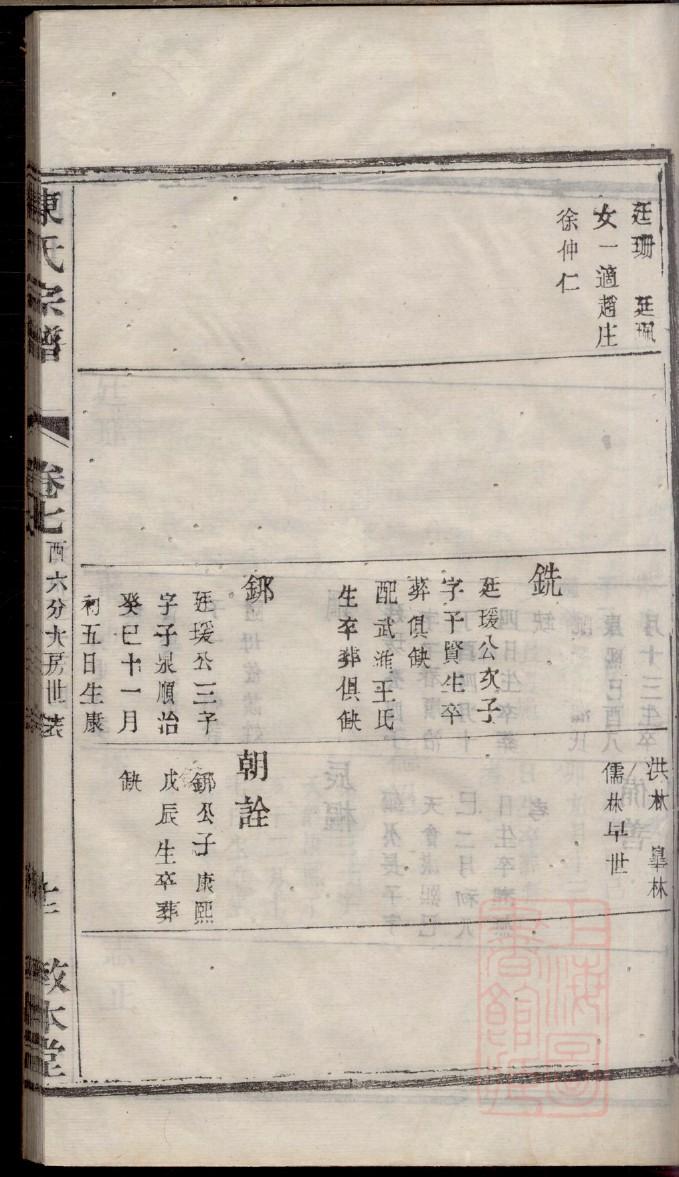 廷珊　廷珮
女一適趙庄
徐仲仁
銑
廷瑗公次子
字子賢生卒
葬俱缺
配武進王氏
生卒葬俱缺
鋣
廷瑗公三子
字子泉順治
癸巳十一月
初五日生康
洪林　皐林
儒林早世
朝詮
鋣公子康熙
戊辰生卒葬
缺
陳氏宗譜
卷七
酉六分大房世表
敦本堂
上海圖書館藏